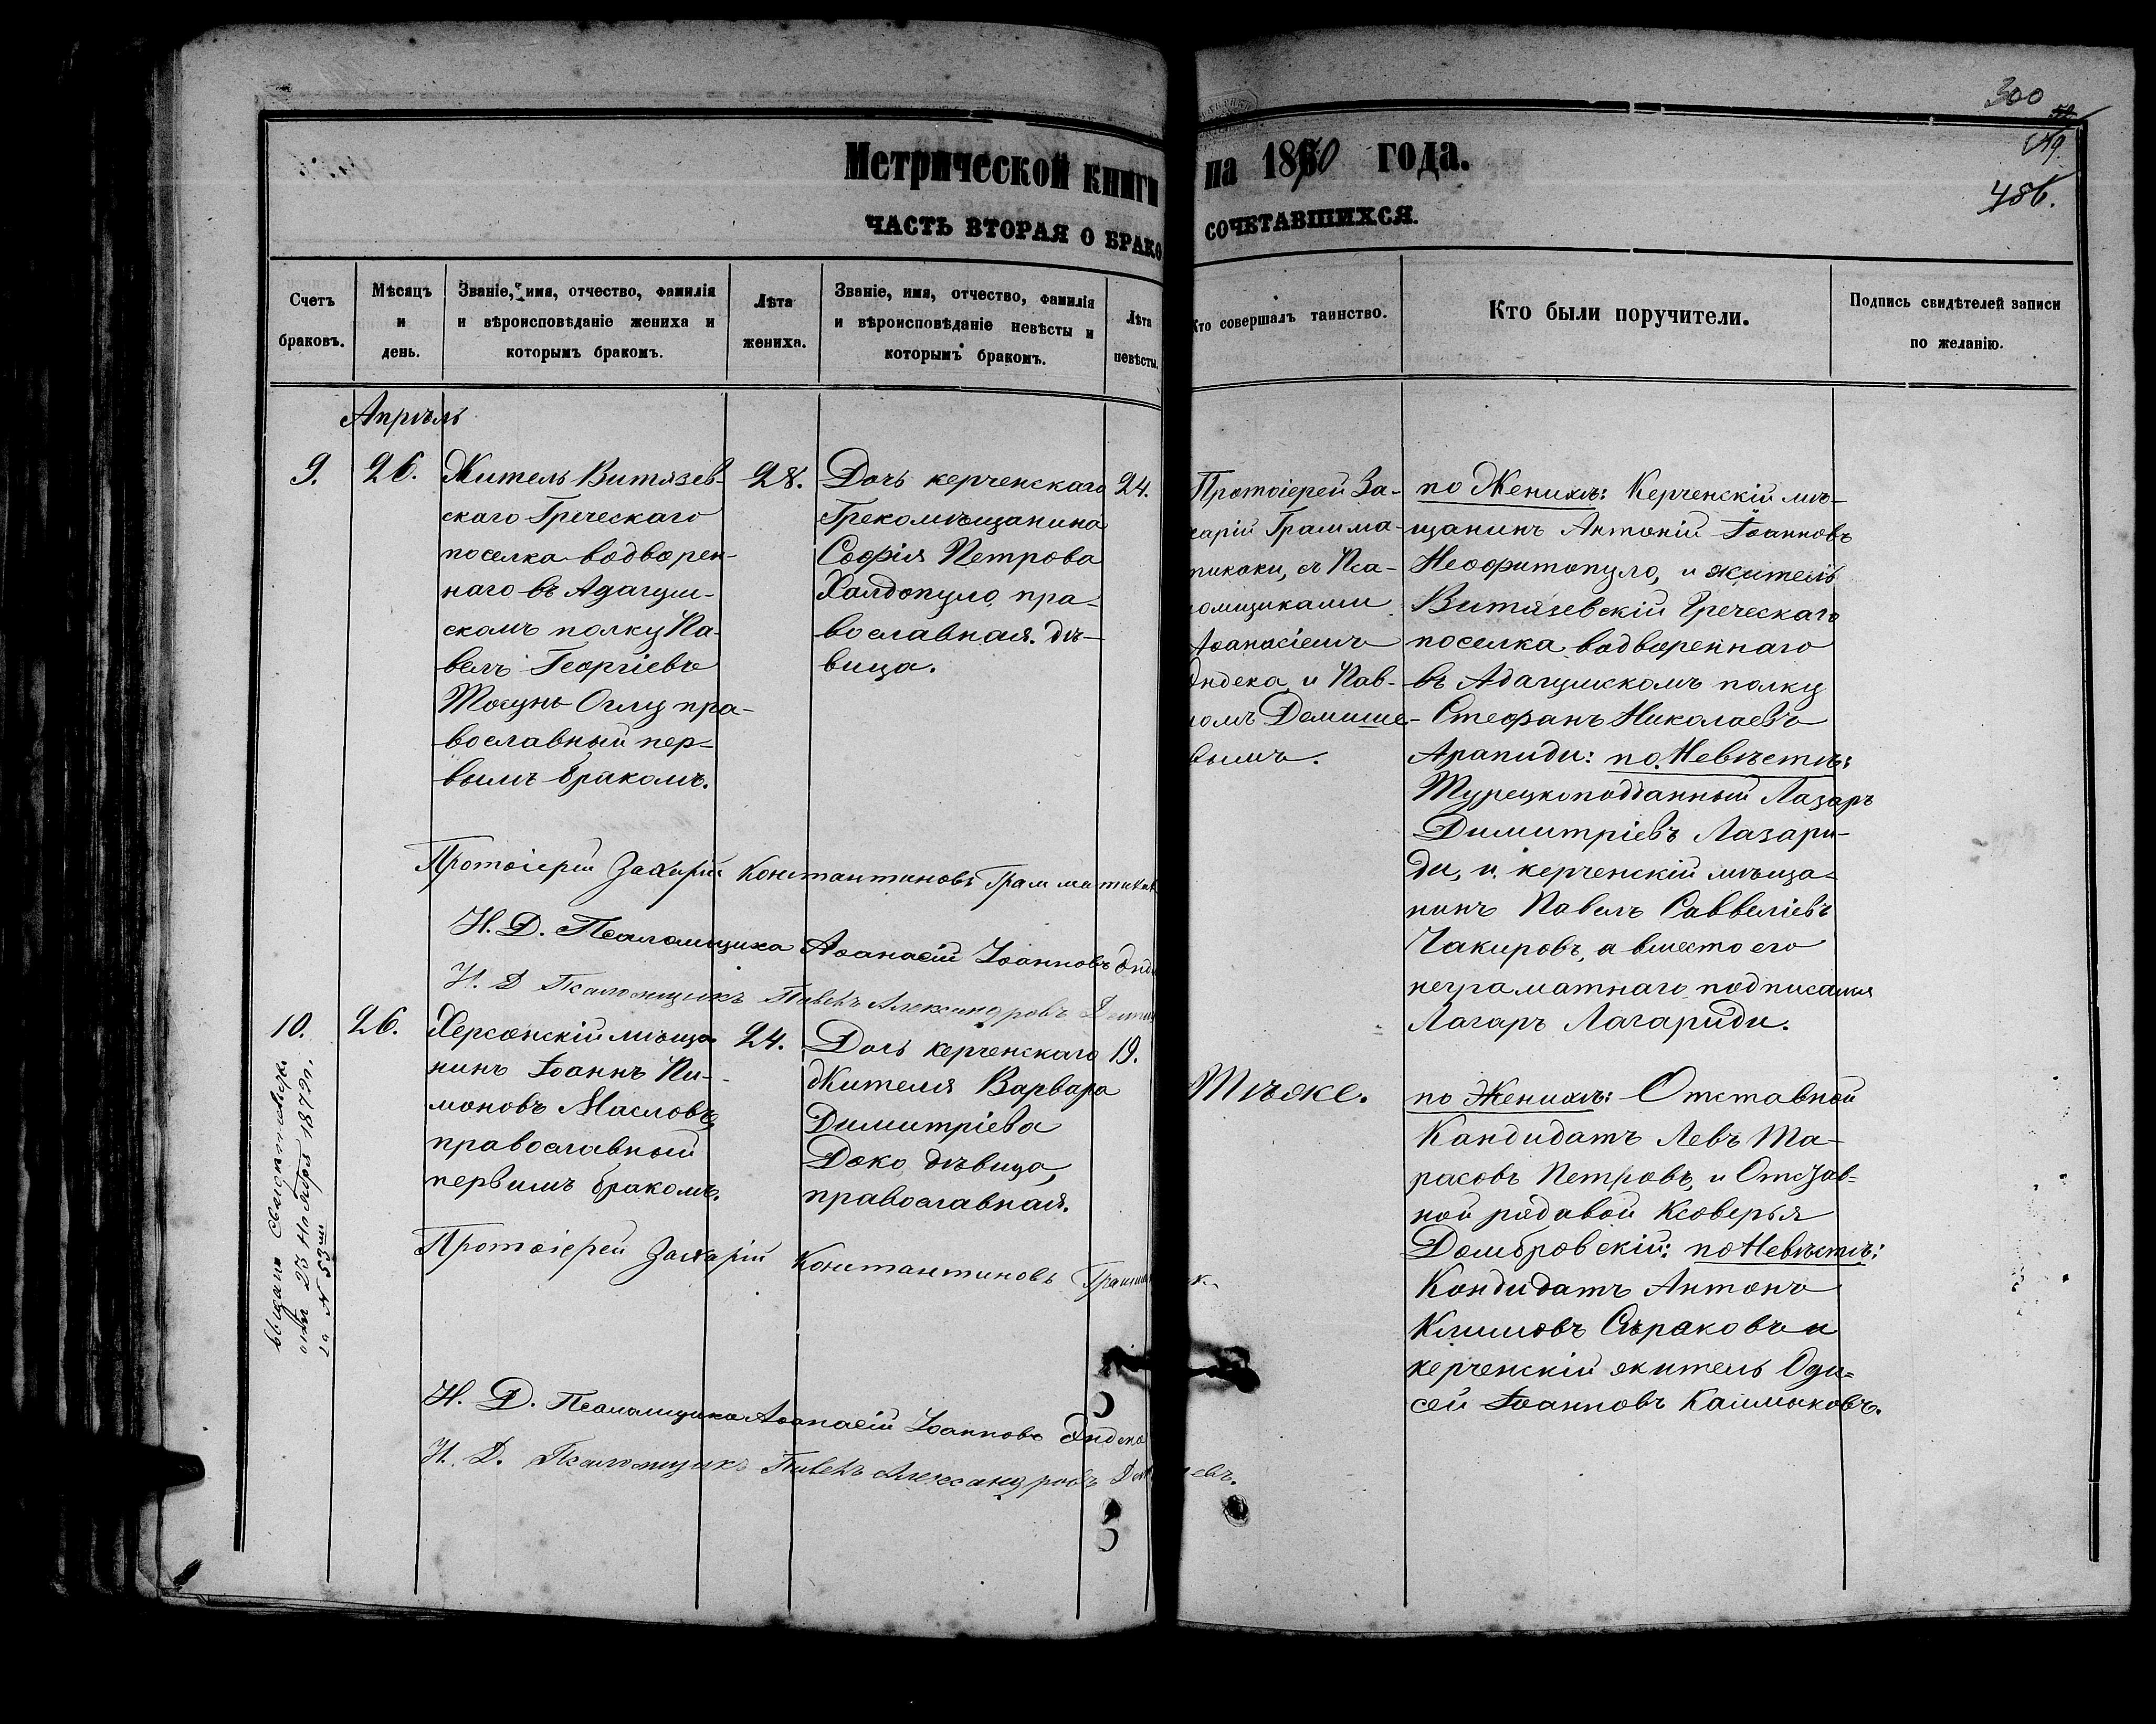 300
59
49.
486.
Метрической книги на 1870 года.
ЧАСТЬ ВТОРАЯ О БРАКОСОЧЕТАВШИХСЯ.
Счетъ браковъ.
Мѣсяцъ и день.
Званіе, имя, отчество, фамилія и вѣроисповѣданіе жениха и которымъ бракомъ.
Лѣта жениха.
Званіе, имя, отчество, фамилія и вѣроисповѣданіе невѣсты и которымъ бракомъ.
Лѣта невѣсты.
Кто совершалъ таинство.
Кто были поручители.
Подпись свидѣтелей записи по желанію.
Апрѣль
9.
26.
Житель Витязев-
скаго Греческаго
поселка водворен-
наго въ Адагум-
скомъ полку Па-
велъ Георгіевъ
Тосунъ-Оглу пра-
вославный пер-
вымъ бракомъ.
28.
Дочь керченскаго
Грекомѣщанина
Софія Петрова
Халдопуло, пра-
вославная. дѣ-
вица.
24.
Протоіерей За-
харій Грамма-
тикоки, съ Пса-
ломщиками
Аѳанасіемъ
Яндека и Пав-
ломъ Демише-
вымъ.
по Женихѣ: Керченскій мѣ-
щанинъ Антоній Іоанновъ
Неофитопуло, и житель
Витязевскій Греческаго
поселка водвореннаго
въ Адагумскомъ полку
Стефанъ Николаевъ
Арапиди: по Невѣстѣ:
Турецкоподданный Лазарь
Димитріевъ Лазари-
ди, и керченскій мѣща-
нинъ Павелъ Саввеліевъ
Чакировъ, а вместо его
неграматнаго подписался
Лазарь Лазариди.
Протоіерей Захарій Константиновъ Грамматик
Н. Д. Псаломщика Аѳанасій Іоанновъ Янд
И. Д. Псаломщикъ Павелъ Александровъ Деми
10.
26.
Херсонскій мѣща-
нинъ Іоаннъ Пи-
моновъ Масловъ,
православный
первымъ бракомъ.
24.
Дочь керченскаго
жителя Варвара
Димитріева
Доко дѣвица,
православная.
19.
Тѣже.
по Женихѣ: Отставной
Кандидатъ Левъ Та-
расовъ Петровъ, и Отстав-
ной рядавой Ксоверья
Домбровскій: по Невѣстѣ:
Кондидатъ Антонъ
Климовъ Сѣраковъ и
керченскій житель Оди-
сей Іоанновъ Калмыковъ.
Протоіерей Захарій Константиновъ Граммат
Н. Д. Псаломщика Аѳанасій Іоанновъ Яндека
И. Д. Псаломщикъ Павелъ Александровъ Демишевъ.
выдано Свидѣтельст
отъ 23 Ноября 1872 г.
за № 53м